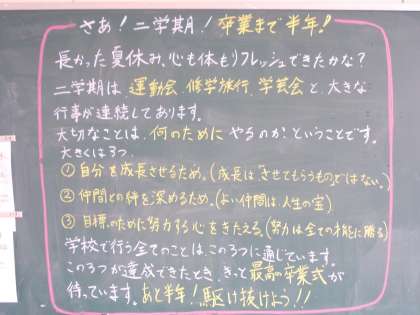 さあ！二学期！卒業まで半年！
長かった夏休み、心も体もリフレッシュできたかな？
二学期は 運動会、修学旅行、学芸会と、大きな
行事が連続してあります。
大切なことは、何のためにやるのか、ということです。
大きくは3つ。
①自分を成長させるため。(成長は「させてもらうもの」ではない。)
②仲間との絆を深めるため。(よい仲間は人生の宝)
③目標のために努力する心をきたえる。(努力は全ての才能に勝る)
学校で行う全てのことは、この3つに通じています。
この3つが達成できたとき、きっと最高の卒業式が
待っています。あと半年！駆け抜けよう！！